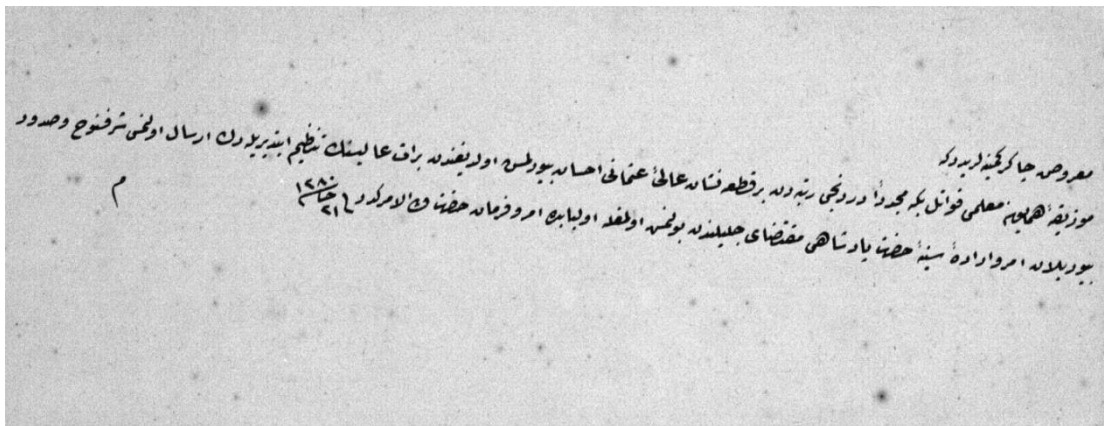 معروض چاکر کمینه لریدرکه
موزیقهٔ همایون معلمی قواتلی بکه مجدداً دردنجی رتبه دن بر قطعه نشان عالیٔ عثمانی احسان بیورلمش اولدیغندن برات عالیسنك تنظیم ایتدیریله رك ارسال اولنمسی شرفسنوح وصدور
بیوریلان امر و ارادهٔ سنیهٔ حضرت پادشاهی مقتضای جلیلندن بولنمش اولمغله اولبابده امر و فرمان حضرت من له الامركدر فی ٢١ ١٢٨٠
م